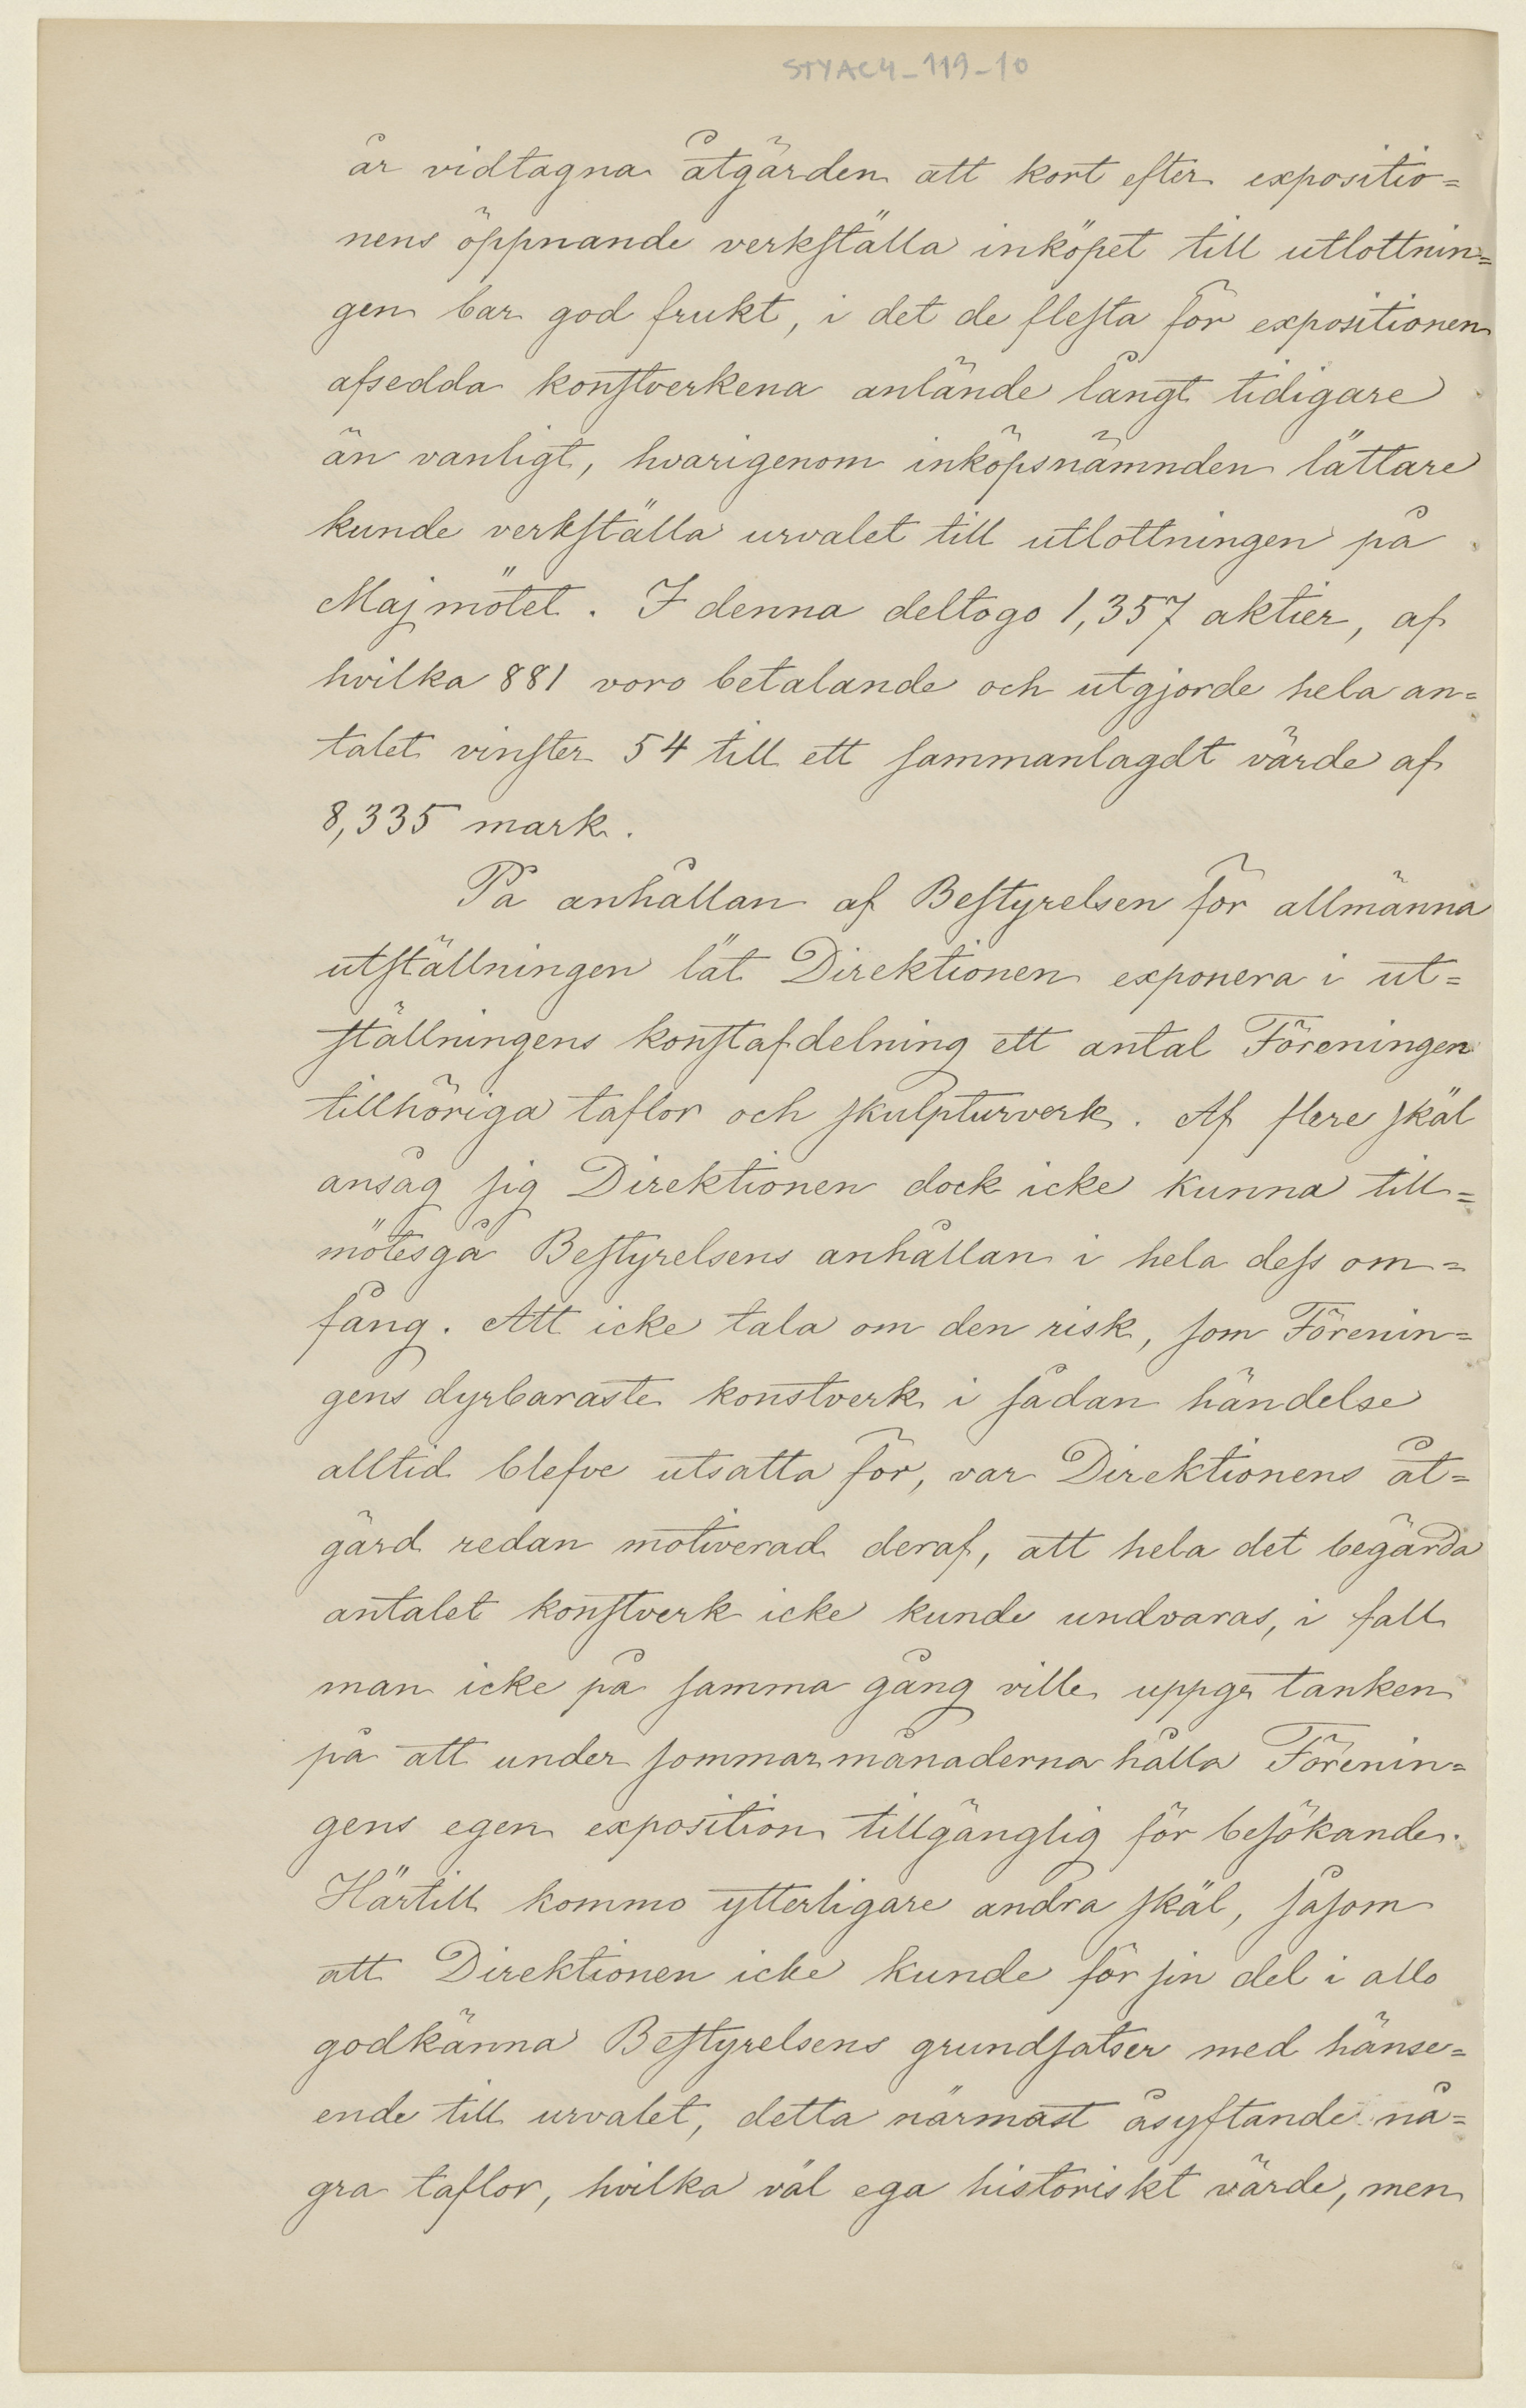 STYAC4_119_10
år vidtagna åtgärden att kort efter expositio=
nens öppnande verkställa inköpet till utlottnin=
gen bar god frukt, i det de flesta för expositionen
afsedda konstverkena anlände långt tidigare
än vanligt, hvarigenom inköpsnämnden lättare
kunde verkställa urvalet till utlottningen på
Majmötet. I denna deltogo 1,357 aktier, af
hvilka 881 voro betalande och utgjorde hela an=
talet vinster 54 till ett sammanlagdt värde af
8,335 mark.
På anhållan af Bestyrelsen för allmänna
utställningen lät Direktionen exponera i ut=
ställningens konstafdelning ett antal Föreningen
tillhöriga taflor och skulpturverk. Af flere skäl
ansåg sig Direktionen dock icke kunna till=
mötesgå Bestyrelsens anhållan i hela dess om=
fång. Att icke tala om den risk, som Förenin=
gens dyrbaraste konstverk i sådan händelse
alltid blefve utsatta för, var Direktionens åt=
gärd redan motiverad deraf, att hela det begärda
antalet konstverk icke kunde undvaras, i fall
man icke på samma gång ville uppge tanken
på att under sommarmånaderna hålla Förenin=
gens egen exposition tillgänglig för besökande.
Härtill kommo ytterligare andra skäl, såsom
att Direktionen icke kunde för sin del i allo
godkänna Bestyrelsens grundsatser med hänse=
ende till urvalet, detta närmast åsyftande nå=
gra taflor, hvilka väl ega historiskt värde, men